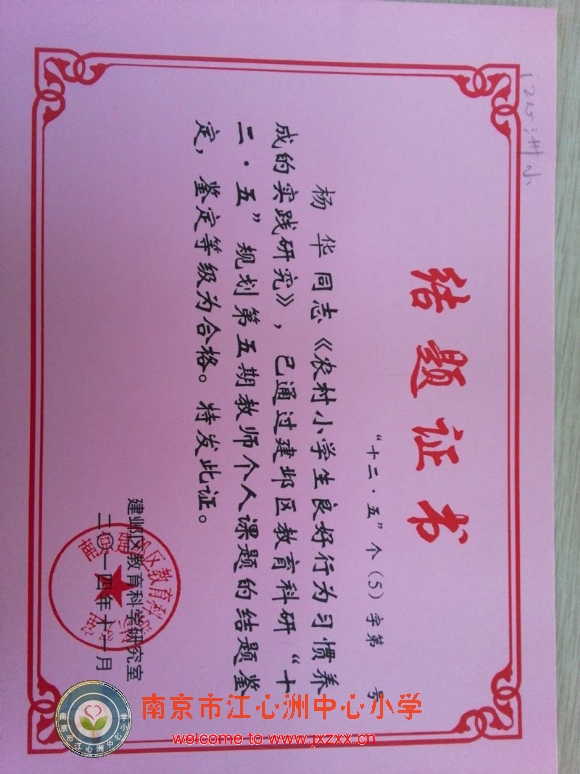 江心洲小
结题证书
“十二·五”个(5)字第 号
杨华同志《农村小学生良好行为习惯养
成的实践研究》，已通过建邺区教育科研“十
二·五”规划第五期教师个人课题的结题鉴
定，鉴定等级为合格。特发此证。
建邺区教育科学研究室
二〇一四年十一月
南京市江心洲中心小学
welcome to www.jxzxx.cn